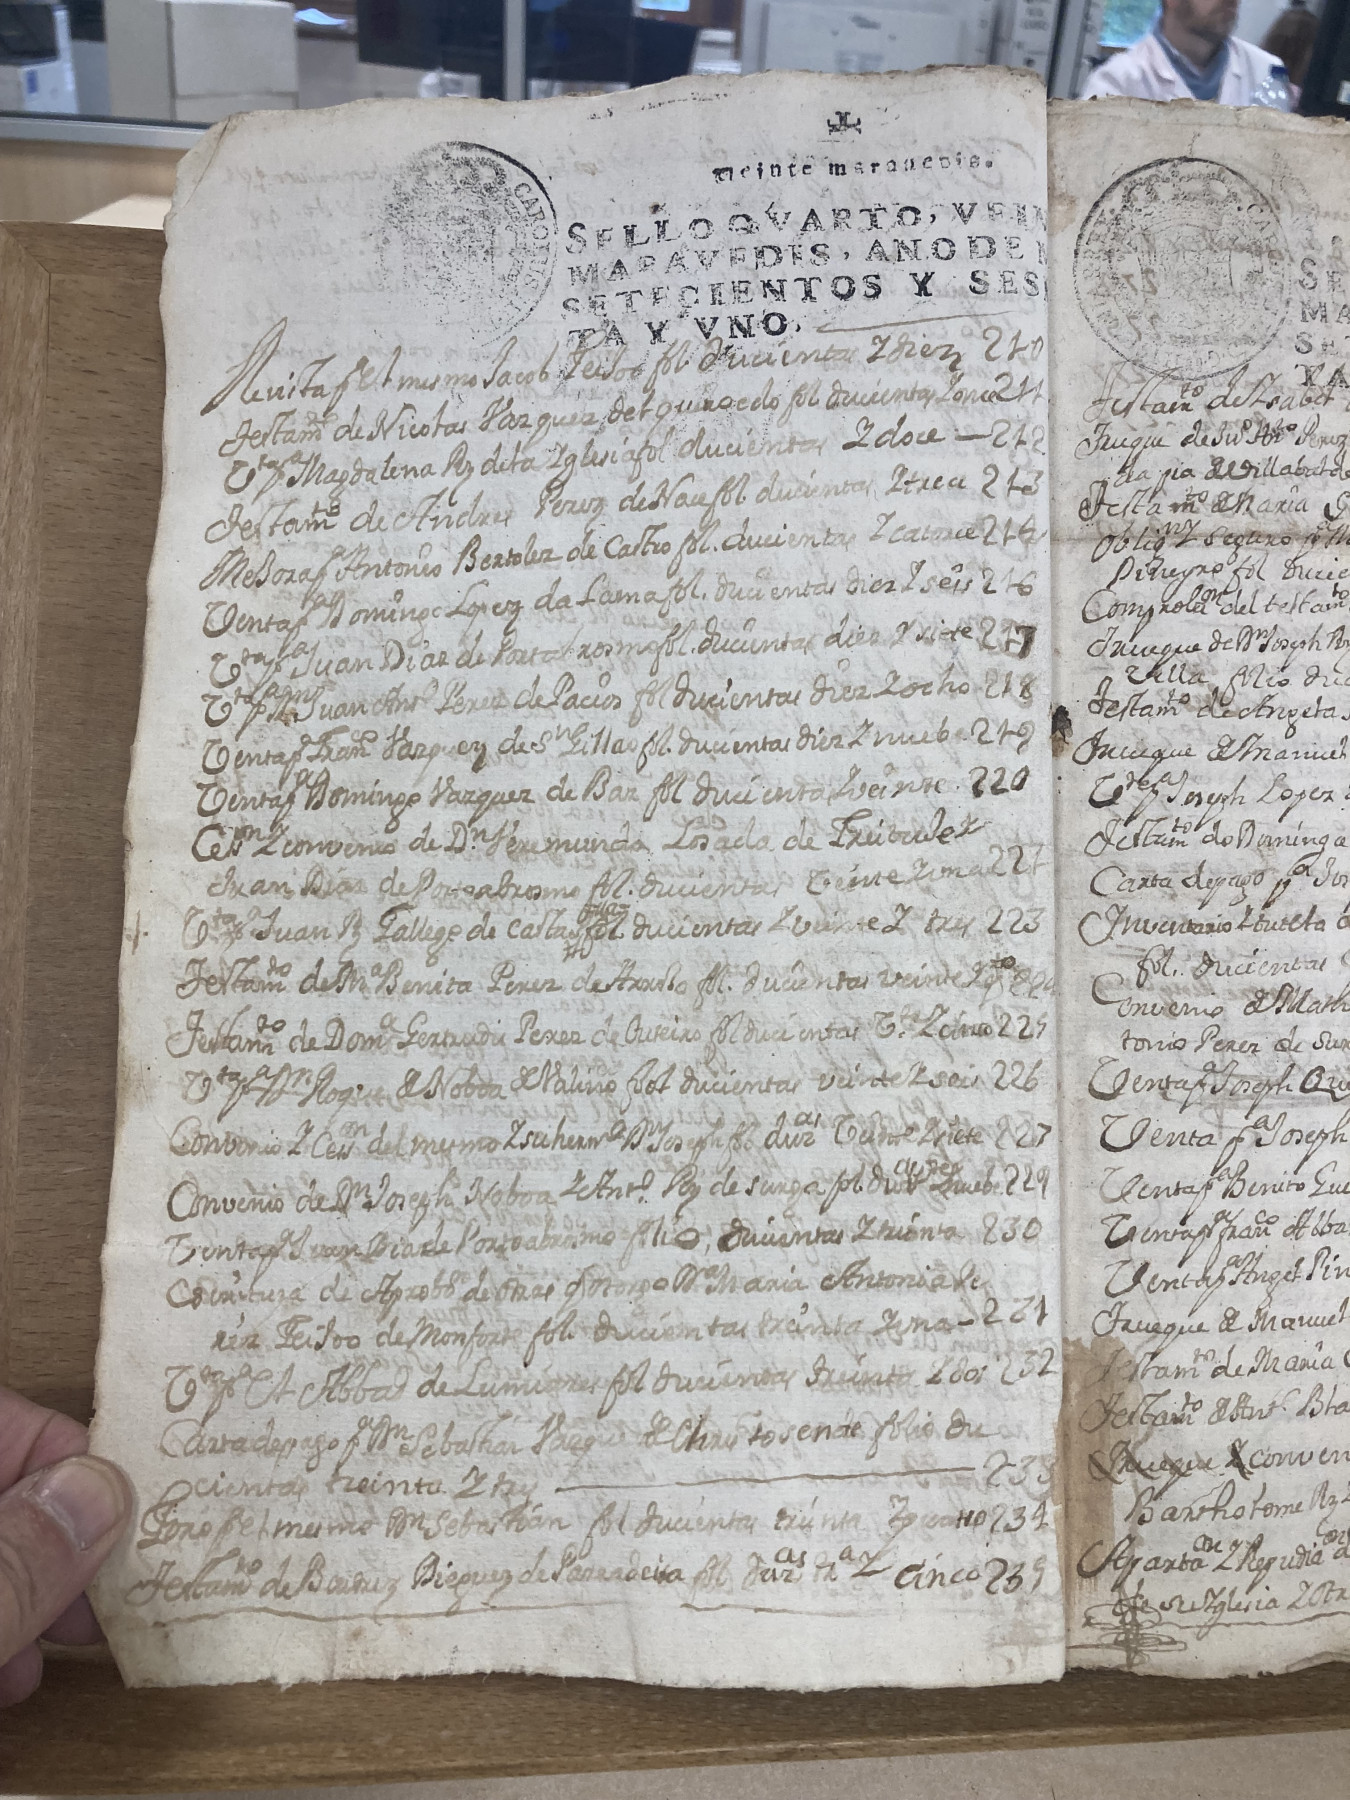 Veinte maravedis.
SELLO QVARTO, VEIN
MARAVEDIS, AÑO DE M
SETECIENTOS Y SES
TA Y VNO.
Revista pr el mismo Jacob Feijoo fol ducientas Y diez 210
Testamto de Nicolas Vazquez del quiroedo fol ducientas Y once 211
Vta pa Magdalena Rz de la Yglesia fol ducientas Y doce 212
Testamto de Andres Perez de Nace fol ducientas Y trece 213
Mejora pa Antonio Bertolez de Castro fol. ducientas Y catorce 214
Venta pa Domingo Lopez da Lama fol. ducientas diez Y seis 216
Vta pa Juan Diaz de Portabrosmo fol. ducientas diez Y siete 217
Vta pa Dn Juan Anto Perez de Pacios fol ducientas diez Y ocho 218
Venta pa Franco Vazquez de Sn Gillao fol. ducientas diez Y nuebe 219
Venta pa Domingo Vazquez de Bar fol ducientas Veinte 220
Ceson Y convenio de Dn Veremundo Losada de Y
Juan Diaz de Portabrosmo fol. ducientas Veinte Y una 221
Vta pa Juan Rz Gallego de Castas fol ducientas Y veinte Y tres 223
Testamto de Ma Benita Perez de fol. ducientas veinte Y qto 224
Testamto de Doma Gertrudis Perez de Outeiro fol ducientas Vte Y cinco 225
Vta pa Dn Roque de Noboa de Valiño fol ducientas veinte Y seis 226
Convenio Y Ceson del mesmo Y su hermo Dn Joseph fol. duzas Veinte Y siete 227
Convenio de Dn Joseph Noboa Y Anto Rz de surga fol. duzas Vte Y nuebe 229
Venta pa Juan Diaz de Portabrosmo folio, ducientas Y treinta 230
Escritura de Aprobon de otras qe otorgo Da Maria Antonia Pe
rez Feijoo de Monforte fol. ducientas treinta Y una 231
Vta pa el Abbad de Lumiares fol ducientas treinta Y dos 232
Carta de pago pa Dn Sebastian Vazqz de Christosende folio du
cientas treinta Y tres 233
Foro pr el mesmo Dn Sebastian fol ducientas treinta Y quatro 234
Testamto de Bieguez de Paradeita fol duzas ta Y cinco 235
Testamto de Ysabel
Trueque de Juo Anto Perez
da pia de Villabad de
Testamto de Maria
Obligon Y seguro pa
Piñeyro fol ducie
Comprobon del testamto
Trueque de Dn Joseph
Villa folio duc
Testamto de Angela
Trueque de Manuel
Vta pa Joseph Lopez
Testamto do Dominga
Carta de pago pa Jos
Inventario Y tutela
fol. ducientas
Convenio de Math
tonio Perez de Sur
Venta pa Joseph
Venta pa Joseph
Venta pa Benito
Venta pa Franco Alba
Venta pa Angel Pin
Trueque de Manuel
Testamto de Maria
Testamto de Anto Bla
Trueque Y conven
Bartholome Rz
Apartaon Y Repudiaon
de su Yglesia Y Otr